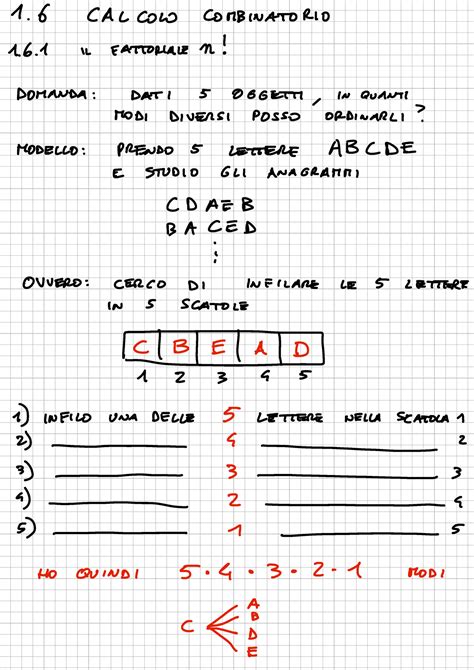 1.6 CALCOLO COMBINATORIO
1.6.1 IL FATTORIALE n!
DOMANDA: DATI 5 OGGETTI, IN QUANTI
MODI DIVERSI POSSO ORDINARLI?
MODELLO: PRENDO 5 LETTERE ABCDE
E STUDIO GLI ANAGRAMMI
CDAEB
BACED
⋮
OVVERO: CERCO DI INFILARE LE 5 LETTERE
IN 5 SCATOLE
C B E A D
1 2 3 4 5
1) INFILO UNA DELLE 5 LETTERE NELLA SCATOLA 1
2) 4 2
3) 3 3
4) 2 4
5) 1 5
HO QUINDI 5·4·3·2·1 MODI
A
B
C
D
E